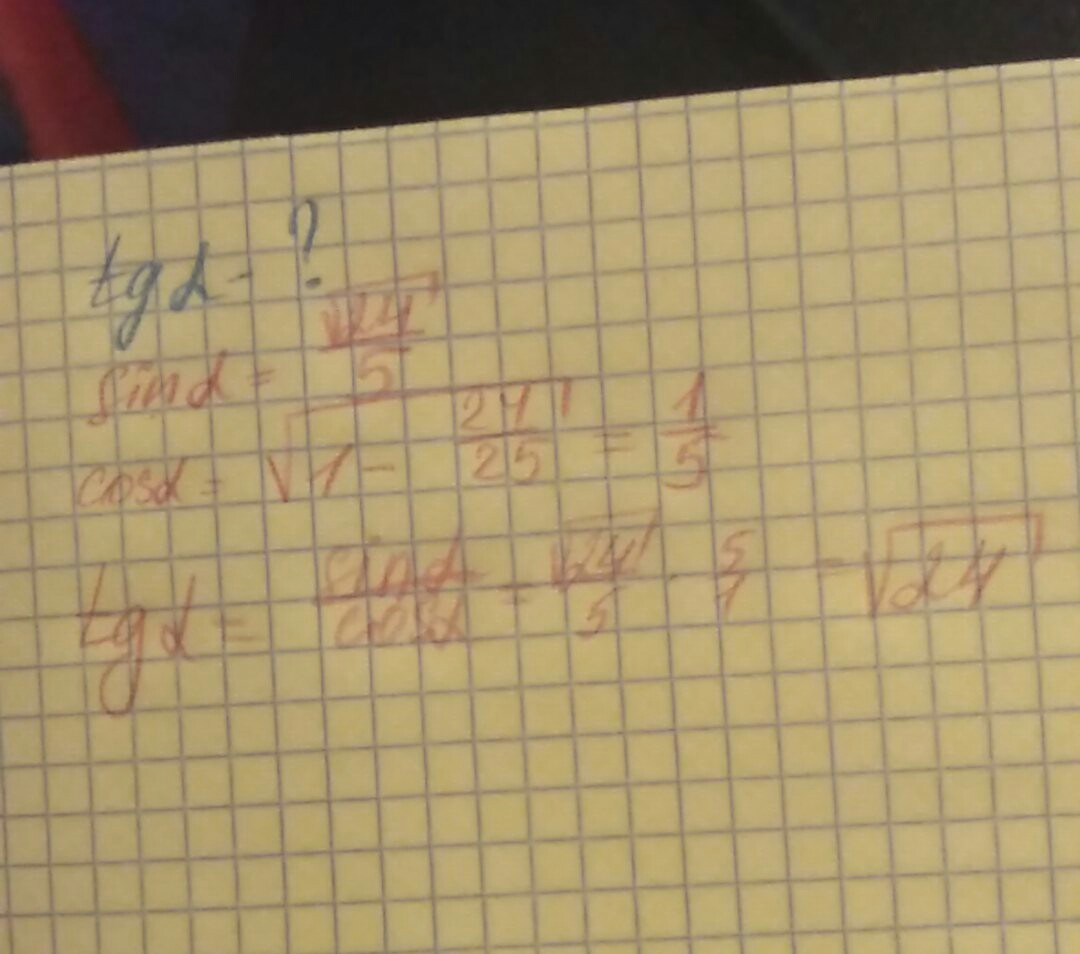 tg α - ?
sin α = √24/5
cos α = √(1 - 24/25) = 1/5
tg α = sin α/cos α = √24/5 · 5/1 = √24